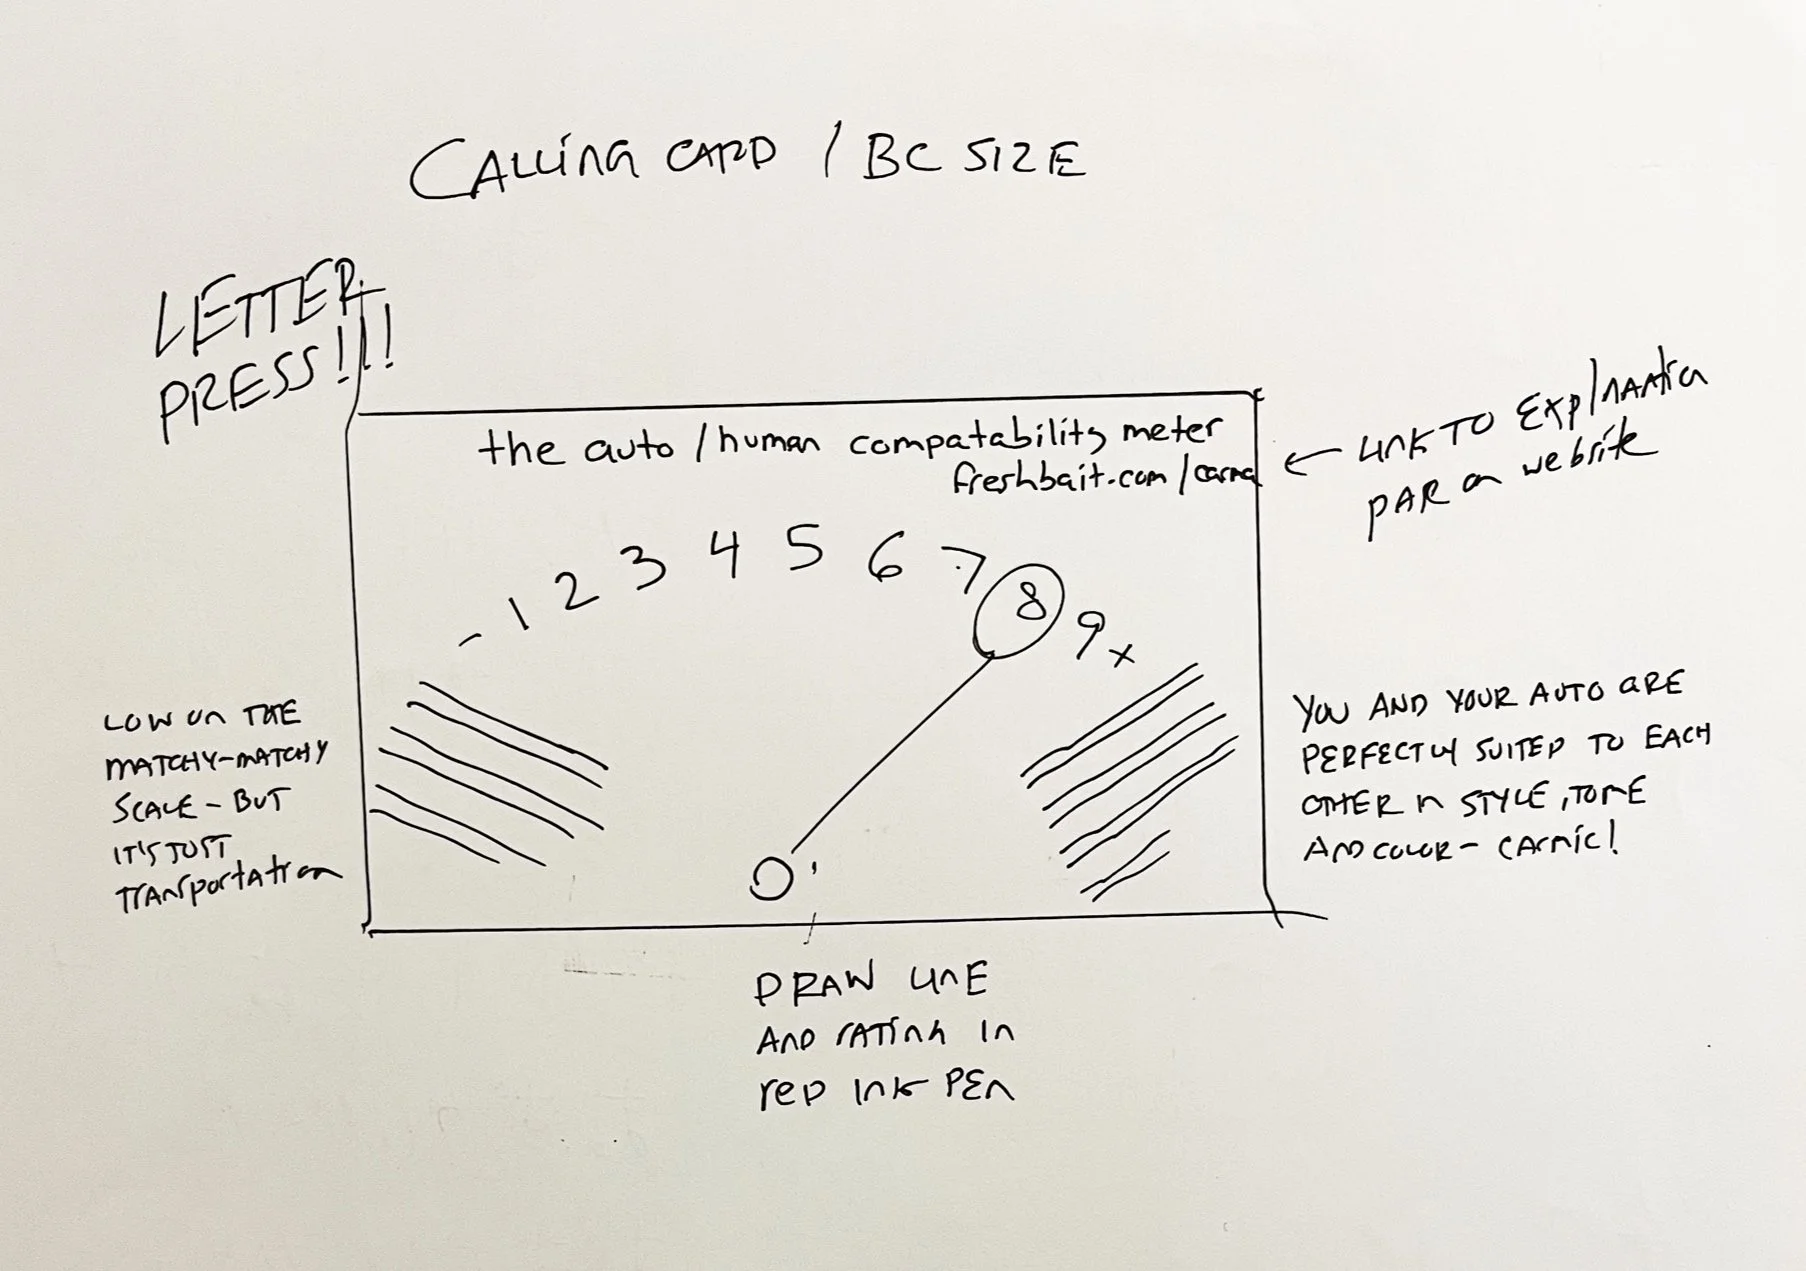 CALLING CARD / BC SIZE
LETTER
PRESS!!!
the auto/human compatability meter
freshbait.com/carma
← LINK TO EXPLNANTION
PAR on website
- 1 2 3 4 5 6 7 8 9 +
LOW ON THE
MATCHY-MATCHY
SCALE - BUT
IT'S JUST
TRANSPORTATION
YOU AND YOUR AUTO ARE
PERFECTLY SUITED TO EACH
OTHER IN STYLE, TONE
AND COLOR - CARMIC!
DRAW LINE
AND RATING IN
RED INK PEN